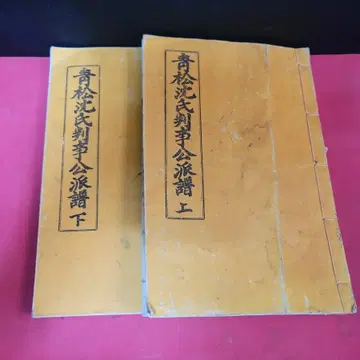 靑松沈氏判事公派譜 上
靑松沈氏判事公派譜 下